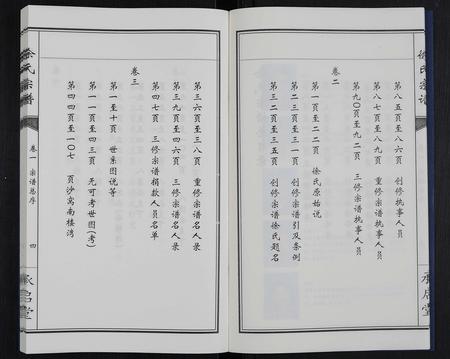 徐氏宗譜
第八五頁至八六頁 創修執事人員
第八七頁至八九頁 重修宗譜執事人員
第九〇頁至九二頁 三修宗譜執事人員
卷二
第一頁至二二頁 徐氏原始說
第二三頁至三一頁 創修宗譜引及条例
第三二頁至三五頁 創修宗譜徐氏題名
承启堂
第三六頁至三八頁 重修宗譜名人录
第三九頁至四六頁 三修宗譜名人录
第四七頁 三修宗譜捐款人員名单
卷三
第一至十頁 世系图說等
第一一頁至四三頁 无可考世图(考)
第四四頁至一〇七頁 沙窝南楼湾
徐氏宗譜
卷一 宗譜总序
四
承启堂